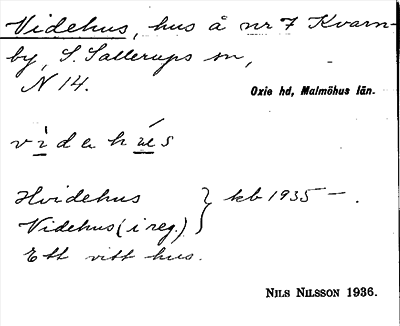 Videhus, hus å nr 7 Kvarn-
by, S. Sallerups sn,
N 14.
Oxie hd, Malmöhus län.
Hvidehus } kb 1935 – .
Videhus (i reg.)
Ett vitt hus.
NILS NILSSON 1936.